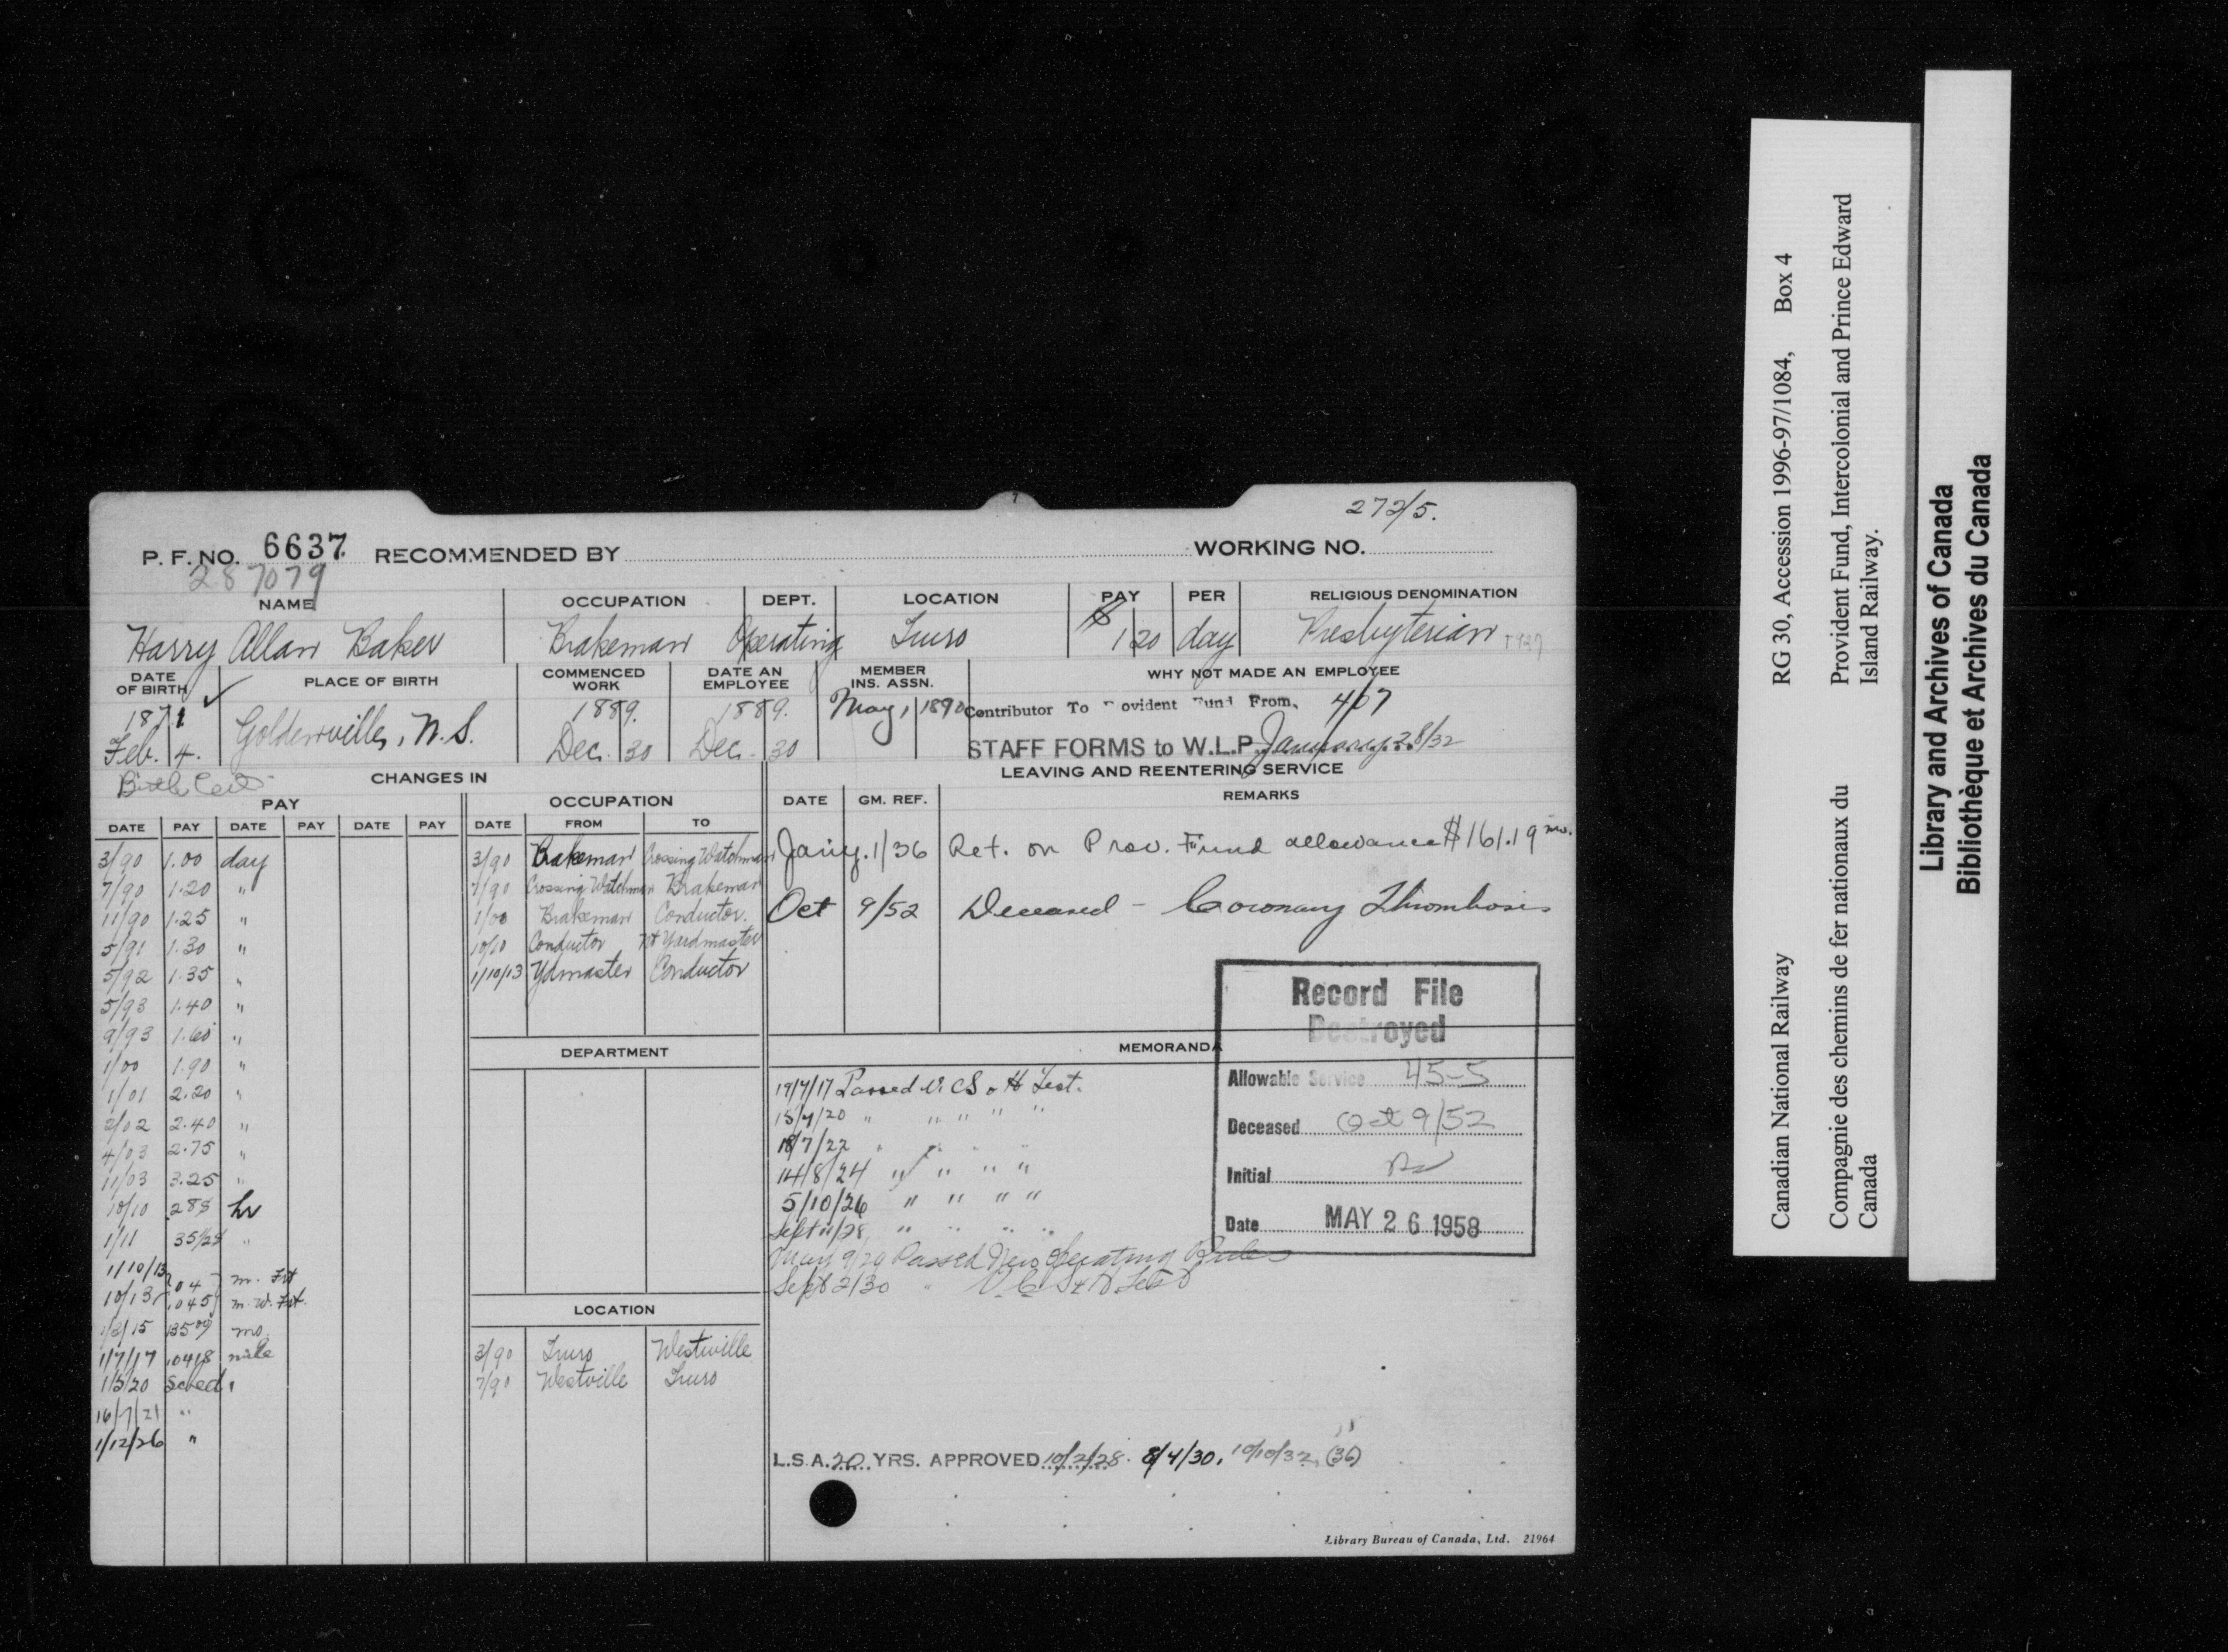 272/5.
P. F. NO. 6637 RECOMMENDED BY WORKING NO.
287079
NAME OCCUPATION DEPT. LOCATION PAY PER RELIGIOUS DENOMINATION
Harry Allan Baker Brakeman Operating Truro $ 1 20 day Presbyterian
DATE OF BIRTH PLACE OF BIRTH COMMENCED WORK DATE AN EMPLOYEE MEMBER INS. ASSN. WHY NOT MADE AN EMPLOYEE
1871 Goldenville, N.S. 1889. 1889. May 1 1890 Contributor To Provident Fund From, 4/07
Feb. 4. Dec. 30 Dec. 30 STAFF FORMS to W.L.P. January 28/32
Birth Cert
CHANGES IN
LEAVING AND REENTERING SERVICE
PAY OCCUPATION DATE GM. REF. REMARKS
DATE PAY DATE PAY DATE PAY DATE FROM TO
3/90 1.00 day
7/90 1.20 "
11/90 1.25 "
5/91 1.30 "
5/92 1.35 "
5/93 1.40 "
9/93 1.60 "
1/00 1.90 "
1/01 2.20 "
2/02 2.40 "
4/03 2.75 "
11/03 3.25 "
10/10 .285 hr
1/11 "
1/10/13 .04 m. Frt
10/13 .045 m. W. Frt.
1/2/15 mo.
1/7/17 .0418 mile
1/5/20 Sched "
16/7/21 "
1/12/26 "
3/90 Brakeman Crossing Watchman
7/90 Crossing Watchman Brakeman
1/00 Brakeman Conductor.
10/10 Conductor Nt Yardmaster
1/10/13 Ydmaster Conductor
DEPARTMENT
LOCATION
3/90 Truro Westville
7/90 Westville Truro
Jany. 1/36 Ret. on Prov. Fund allowance $161.19 mo.
Oct 9/52 Deceased - Coronary Thrombosis
MEMORANDA
19/7/17 Passed V. C S & H Test.
15/7/20 " " " " "
18/7/22 " " " "
14/8/24 " " " "
5/10/26 " " " "
Sept 11/28, " " " "
May 9/29 Passed New Operating Rules
Sept 2/30 " V. C. S & H Test
Record File
Destroyed
Allowable Service 45-5
Deceased Oct 9/52
Initial
Date MAY 26 1958
L.S.A. 20 YRS. APPROVED 10/2/28. 8/4/30, 10/10/32, (36)
Library Bureau of Canada, Ltd. 21964
Canadian National Railway RG 30, Accession 1996-97/1084, Box 4
Compagnie des chemins de fer nationaux du Provident Fund, Intercolonial and Prince Edward
Canada Island Railway.
Library and Archives of Canada
Bibliothèque et Archives du Canada